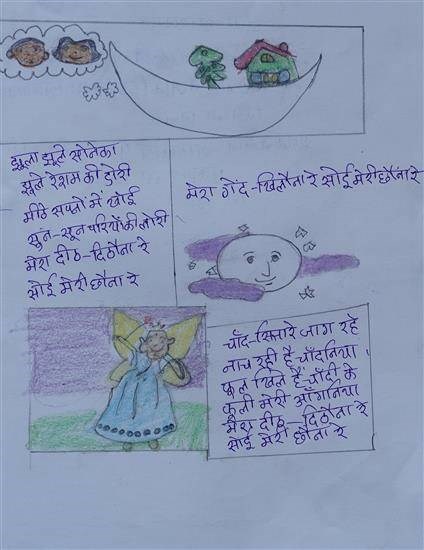 झुला झुले सोनेका
झुले रेशम की डोरी
मीठे सपनो में खोई
सुन-सून परियोंकी लोरी
मेरा दीठ-दिठौना रे
सोई मेरी छौना रे
मेरा गेंद-खिलौना रे सोई मेरी छौना रे
चाँद-सितारे जाग रहे
नाच रही है चाँदनिया
फूल खिले हैं चाँदी के
फूली मेरी आँगनिया
मेरा दीठ-दिठौना रे
सोई मेरी छौना रे